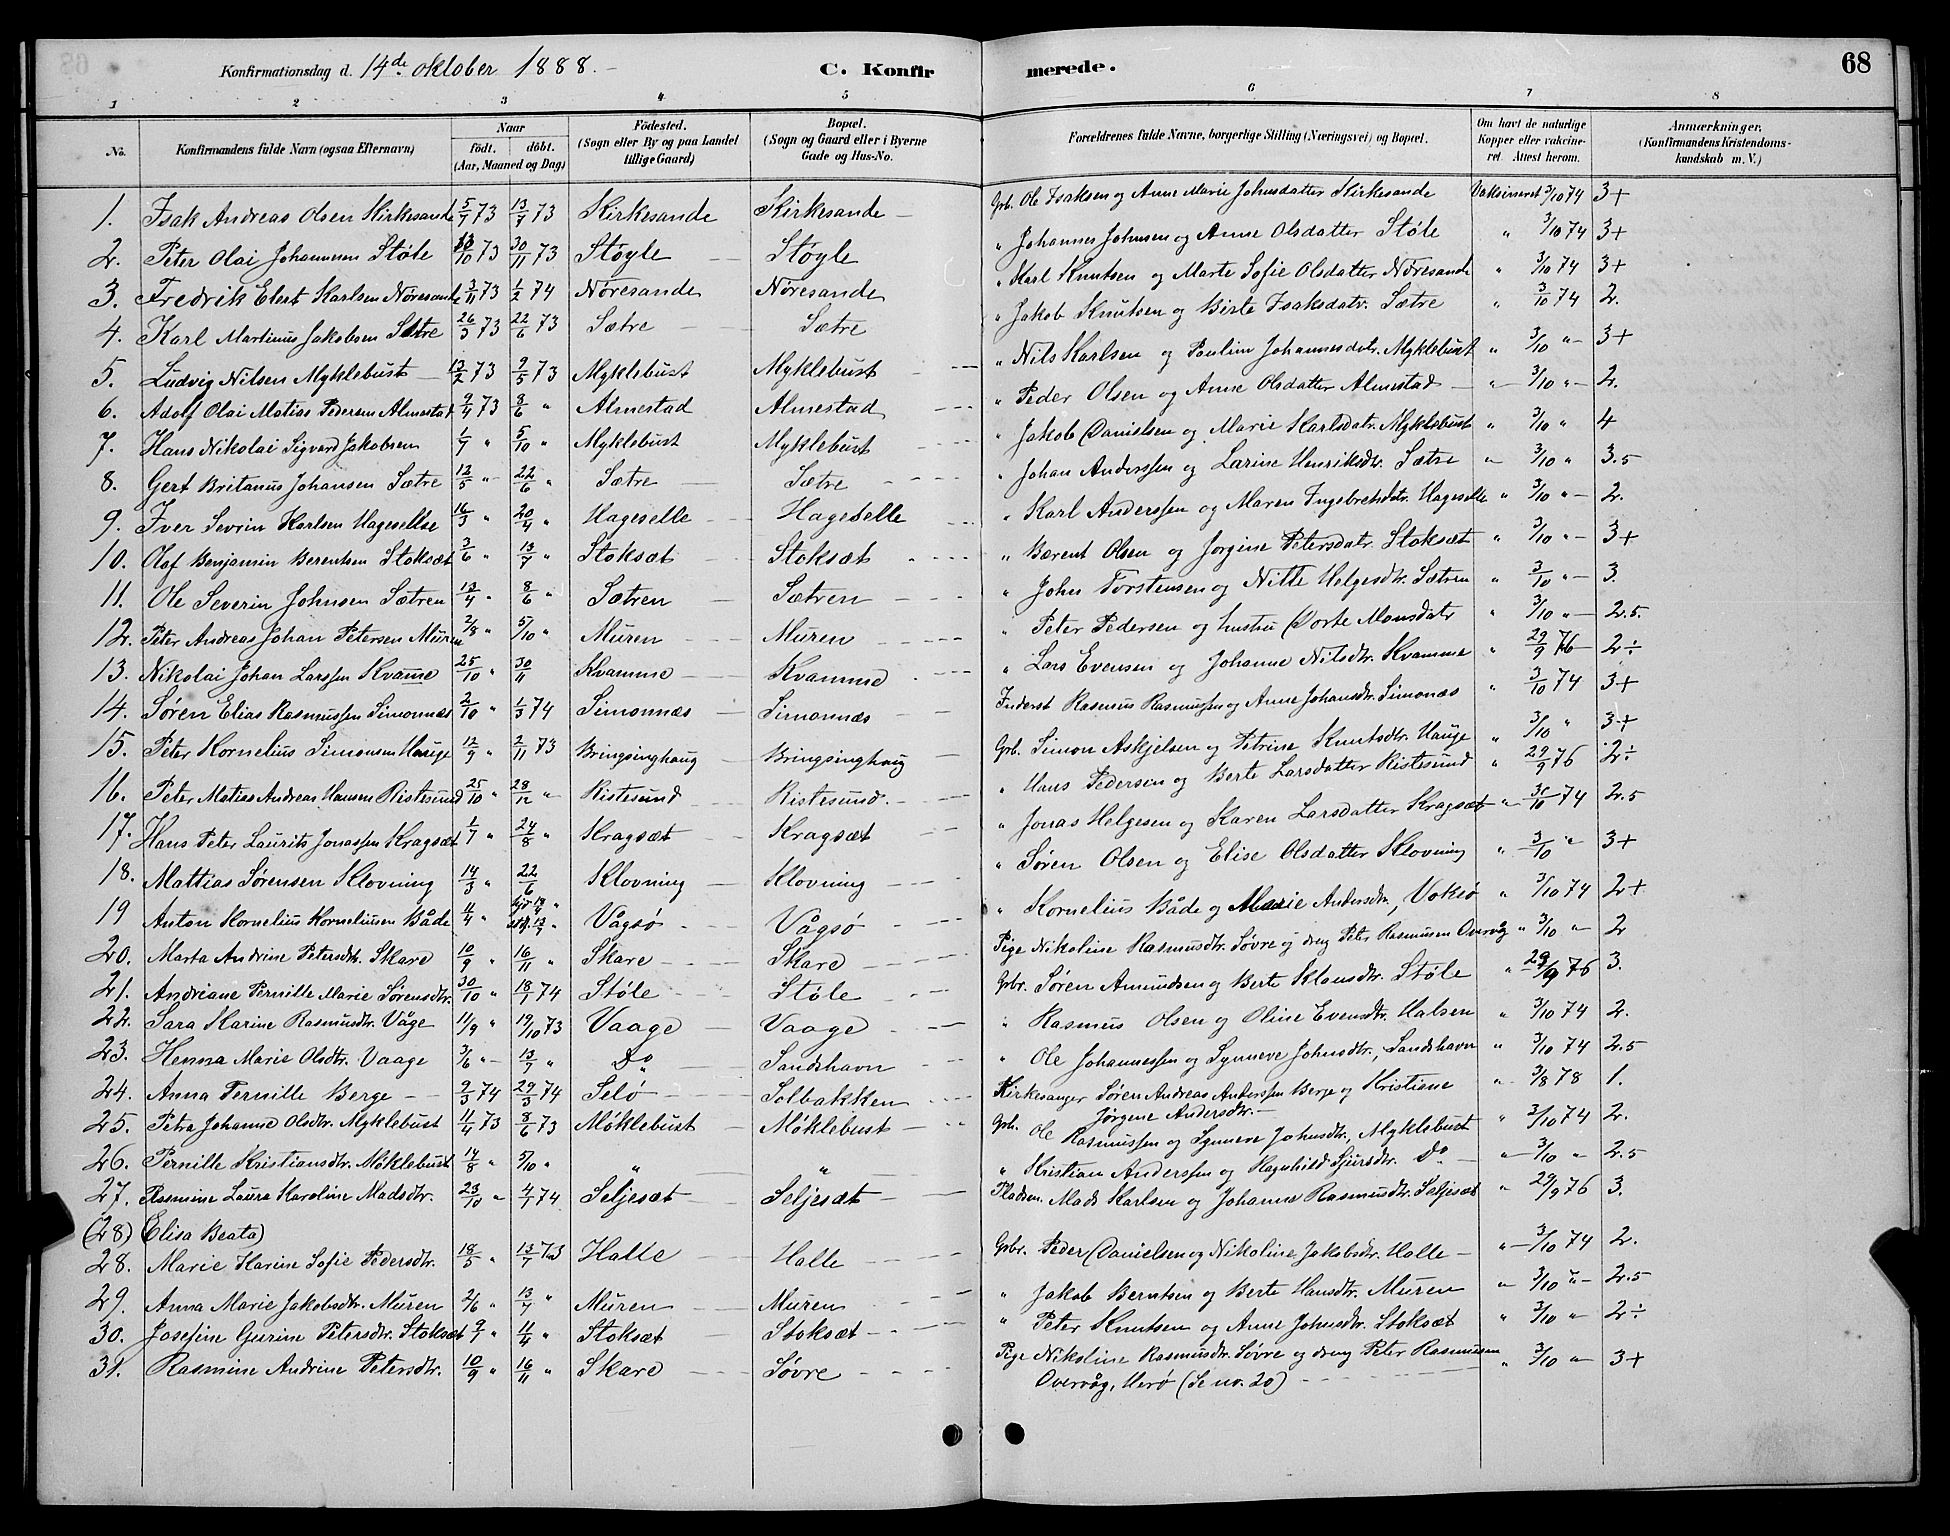 Konfirmationsdag d. 14de oktober 1888. C. Konfirmerede. 68
1 2 3 4 5 6 7 8
No. Konfirmandens fulde Navn (ogsaa Efternavn) Naar födt. döbt. (Aar, Maaned og Dag) Födested. (Sogn eller By og paa Landet tillige Gaard) Bopæl. (Sogn og Gaard eller i Byerne Gade og Hus-No. Forældrenes fulde Navne, borgerlige Stilling (Næringsvei) og Bopæl. Om havt de naturlige Kopper eller vakcineret Attest herom. Anmærkninger. (Konfirmandens Kristendomskundskab m. V.)
1. Isak Andreas Olsen Kirkesande 5/7 73 13/7 73 Kirkesande Kirkesande Grb. Ole Isaksen og Anne Marie Johnsdatter Kirkesande Vaksineret 3/10 74 3+
2. Peter Olai Johannesen Støle 10/10 73 30/11 73 Støyle Støyle " Johannes Johnsen og Anne Olsdatter Støle " 3/10 74 3+
3. Fredrik Elert Karlsen Nøresande 3/11 73 1/2 74 Nøresande Nøresande " Karl Knutsen og Marte Sofie Olsdatter Nøresande " 3/10 74 3+
4. Karl Martinus Jakobsen Sætre 26/3 73 22/6 73 Sætre Sætre " Jakob Knutsen og Birte Isaksdatr. Sætre " 3/10 74 2.
5. Ludvig Nilsen Myklebust 13/2 73 2/5 73 Myklebust Myklebust " Nils Karlsen og Pauline Johannesdatr. Myklebust " 3/10 " 3+
6. Adolf Olai Matias Pedersen Almestad 9/4 73 8/6 " Almestad Almestad " Peder Olsen og Anne Olsdatter Almestad " 3/10 " 2.
7. Hans Nikolai Sigvard Jakobsen 1/7 " 5/10 " Myklebust Myklebust " Jakob Danielsen og Marie Karlsdatr. Myklebust " 3/10 " 4
8. Gert Britanus Johansen Sætre 12/5 " 22/6 " Sætre Sætre " Johan Anderssen og Larine Henriksdtr. Sætre " 3/10 " 3.5
9. Iver Sevrin Karlsen Hageselle 16/3 " 20/4 " Hageselle Hageselle " Karl Anderssen og Maren Ingebretsdatr. Hageselle " 3/10 " 2.
10. Olaf Benjamin Berentsen Stoksæt 3/6 " 13/7 " Stoksæt Stoksæt " Bærent Olsen og Jørgine Petersdatr. Stoksæt " 3/10 " 3+
11. Ole Severin Johnsen Sætren 13/4 " 8/6 " Sætren Sætren " John Torstensen og Nille Helgesdtr. Sætren " 3/10 " 3.
12. Peter Andreas Johan Petersen Muren 2/8 " 5/10 " Muren Muren " Peter Pedersen og hustru Dorte Monsdatr " 3/10 " 2.5
13. Nikolai Johan Larssen Kvamme 25/10 " 30/11 Kvamme Kvamme " Lars Evensen og Johanne Nilsdtr. Kvamme " 29/9 76 2÷
14. Søren Elias Rasmussen Simonnæs 2/10 " 1/3 74 Simonnæs Simonnæs Inderst Rasmus Rasmussen og Anne Johansdtr. Simonæs " 3/10 74 3+
15. Peter Kornelius Simonsen Hauge 12/9 " 2/11 73 Bringsinghaug Bringsinghaug Grb. Simon Askjelsen og Petrine Knutsdtr. Hauge " 3/10 " 3+
16. Peter Matias Andreas Hansen Ristesund 25/10 " 28/12 " Ristesund Ristesund. " Hans Pedersen og Berte Larsdatter Ristesund " 29/9 76 2÷
17. Hans Peter Laurits Jonassen Kragsæt 1/7 " 24/8 " Kragsæt Kragsæt " Jonas Helgesen og Karen Larsdatter Kragsæt " 3/10 74 2.5
18. Mattias Sørensen Klovning 14/3 " 22/6 Klovning Klovning " Søren Olsen og Elise Olsdatter Klovning " 3/10 " 3+
19 Anton Kornelius Korneliussen Både 11/4 " 13/4 " 13/7 " Vågsø Vågsø " Kornelius Både og Marie Andersdtr, Voksø " 3/10 74 2+
20. Marta Andrine Petersdtr. Skare 10/9 " 16/11 " Skare Skare Pige Nikoline Rasmusdtr. Søvre og dreng Peter Rasmusen Overvåg " 3/10 " 2
21. Andriane Pernille Marie Sørensdtr. 30/10 " 18/1 74 Støle Støle Grbr. Søren Amundsen og Berte Klausdtr. Støle " 29/9 76 3.
22. Sara Karine Rasmusdtr. Våge 11/9 " 19/10 73 Vaage Vaage " Rasmus Olsen og Oline Evensdtr. Halsen " 3/10 74 2.
23. Henna Marie Olsdtr. Vaage 3/6 " 13/7 " Do Sandshavn " Ole Johannessen og Synneve Johnsdtr, Sandshavn " 3/10 74 2.5
24. Anna Pernille Berge 9/3 74 29/3 74 Selø Solbakken Kirkesanger Søren Andreas Anderssen Berge og Kristiane Jørgene Andersdtr. " 3/8 78 1.
25. Petra Johanne Olsdtr. Myklebust 11/4 73 8/6 73 Møklebust Møklebust Grb. Ole Rasmussen og Synneve Johnsdtr, Myklebust " 3/10 74 2.
26. Pernille Kristiansdtr. Møklebust 14/8 " 5/10 " " " " Kristian Anderssen og Ragnhild Sjursdtr. Do " 3/10 " 2.5
27. Rasmine Laura Karoline Madsdtr. 23/10 " 4/1 74 Seljesæt Seljesæt Pladsm. Mads Karlsen og Johanne Rasmusdtr. Seljesæt " 29/9 76 3.
(28) (Elisa Beata)
28. Marie Karine Sofie Pedersdtr. 18/5 " 13/7 73 Halle Halle Grbr. Peder Danielsen og Nikoline Jakobsdtr. Halle " 3/10 74 2.
29. Anna Marie Jakobsdtr. Muren 2/6 " 13/7 " Muren Muren " Jakob Berntsen og Berte Hansdtr. Muren " 3/10 " 2.5
30. Josefine Gurine Petersdtr. Stoksæt 9/1 " 11/4 " Stoksæt Stoksæt " Peter Knutsen og Anne Johnsdtr. Stoksæt " 3/10 " 2÷
31. Rasmine Andrine Petersdtr. 10/9 " 16/11 " Skare Søvre Pige Nikoline Rasmusdtr. Søvre og dreng Peter Rasmussen Overvåg, Herø (Se no. 20) " 3/10 " 3+